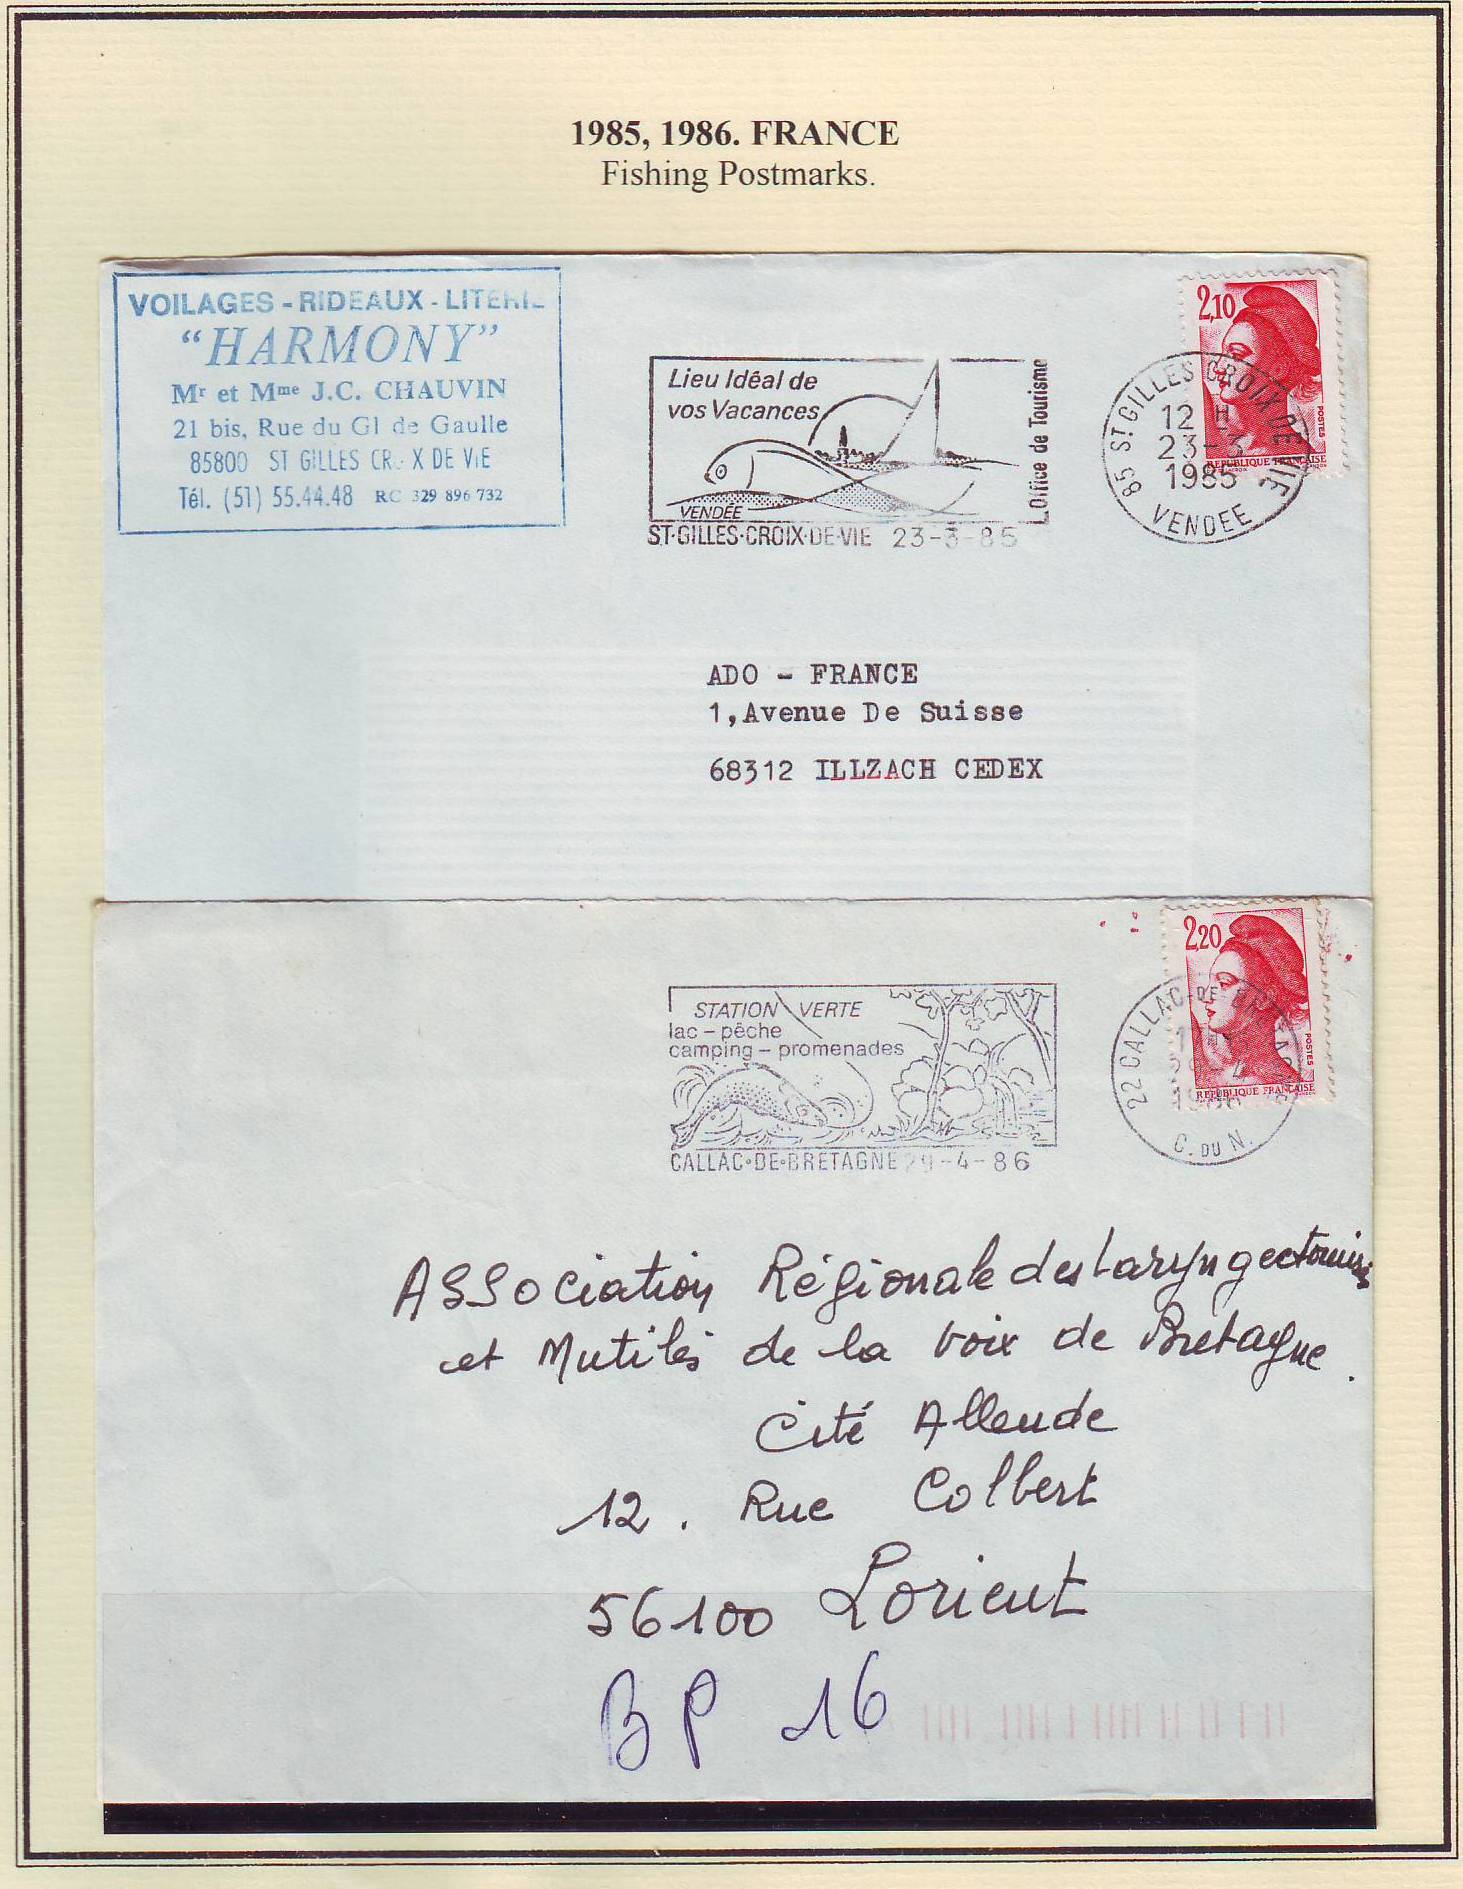 1985, 1986. FRANCE
Fishing Postmarks.
VOILAGES - RIDEAUX - LITERIE
"HARMONY"
Mr et Mme J.C. CHAUVIN
21 bis, Rue du Gl de Gaulle
85800 ST GILLES CROIX DE VIE
Tél. (51) 55.44.48 RC 329 896 732
Lieu Idéal de
vos Vacances
VENDÉE
Office de Tourisme
ST·GILLES·CROIX·DE·VIE 23-3-85
2,10
POSTES
REPUBLIQUE FRANÇAISE
85 ST GILLES CROIX DE VIE
12 H
23-3
1985
VENDEE
ADO - FRANCE
1, Avenue De Suisse
68312 ILLZACH CEDEX
STATION VERTE
lac - pêche
camping - promenades
CALLAC·DE·BRETAGNE 29-4-86
2,20
POSTES
REPUBLIQUE FRANÇAISE
22 CALLAC-DE-BRETAGNE
29-4
1986
C. DU N.
Association Régionale des Laryngectomisés
et Mutilés de la Voix de Bretagne.
Cité Allende
12. Rue Colbert
56100 Lorient
BP 16